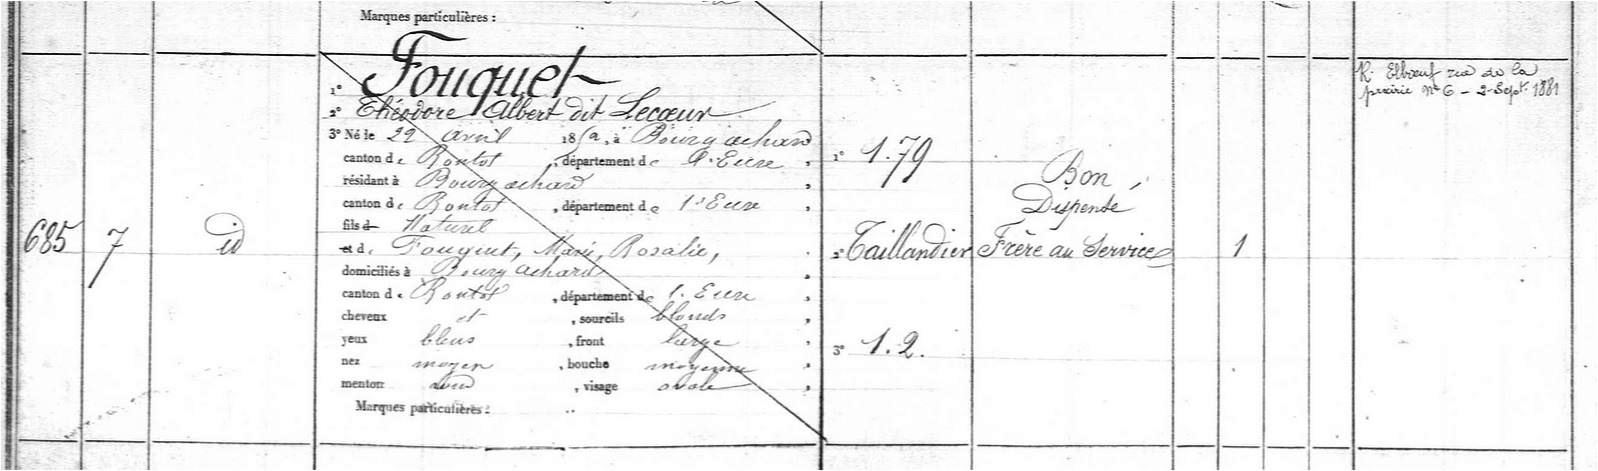 Marques particulières :
1° Fouquet
2° Théodore Albert dit Lecœur
3° Né le 22 avril 185 , à Bourgachard
canton de Routot , département de l'Eure ,
résidant à Bourgachard ,
canton de Routot , département de l'Eure ,
fils d Naturel
et de Fouquet, Marie, Rosalie, ,
domiciliés à Bourgachard ,
canton de Routot , département de l'Eure ,
cheveux et , sourcils blonds ,
yeux bleus , front large ,
nez moyen , bouche moyenne ,
menton rond , visage ovale ,
Marques particulières :
685
7
id
1° 1.79
2° Taillandier
3° 1.2.
Bon
Dispensé
Frère au Service
1
R. Elbœuf rue de la
prairie N° 6 – 2 Sept. 1881